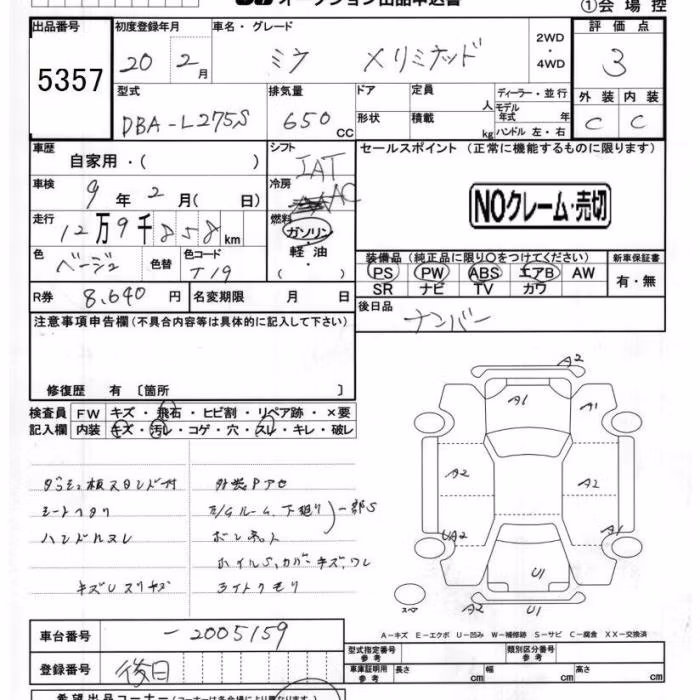 オークション出品申込書
①会場控
出品番号 初度登録年月 車名・グレード 2WD・4WD 評価点
5357 20 2月 ミラ Xリミテッド 3
型式 排気量 ドア 定員 人 ディーラー・並行
DBA-L275S 650cc 形状 積載 kg モデル年式 年 ハンドル 左・右
外装 内装
C C
車歴 自家用・( ) シフト IAT セールスポイント (正常に機能するものに限ります)
車検 9年2月( 日) 冷房 AC
NOクレーム・売切
走行 12万9千858km 燃料 ガソリン・軽油・( )
色 ベージュ 色替 色コード T19
装備品 (純正品に限り○をつけてください) 新車保証書
PS PW ABS エアB AW 有・無
SR ナビ TV カワ
R券 8,640円 名変期限 月 日 後日品
ナンバー
注意事項申告欄 (不具合内容等は具体的に記入して下さい)
修復歴 有 〔箇所 〕
検査員 FW キズ・飛石・ヒビ割・リペア跡・×要
記入欄 内装 キズ・汚レ・コゲ・穴・スレ・キレ・破レ
A2
A1 A1
A2 A2
UA2 A1
U1
スペア A2 U1
ダッシュ板スタンド付 外装Pアロ
シートヘタリ
ハンドルスレ ボンネット 一部S
ホイルS,カバーキズ,ワレ
キズUスリキズ ライトクモリ
A－キズ E－エクボ U－凹み W－補修跡 S－サビ C－腐食 XX－交換済
車台番号 -2005159 型式指定番号 参考 類別区分番号 参考
登録番号 後日 車庫証明用 参考 長さ cm 幅 cm 高さ cm
希望出品コーナー (コーナーは各会場により異なります。)